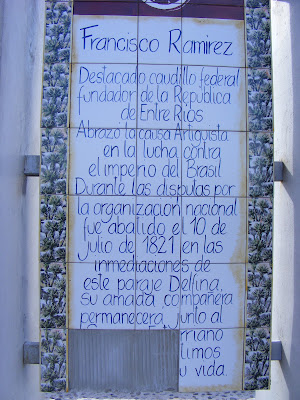 Francisco Ramirez
Destacado caudillo federal
fundador de la República
de Entre Ríos
Abrazó la causa Artiguista
en la lucha contra
el imperio del Brasil
Durante las disputas por
la organización nacional
fue abatido el 10 de
julio de 1821 en las
inmediaciones de
este paraje Delfina,
su amada compañera
permanecerá junto al
rriano
timos
u vida.